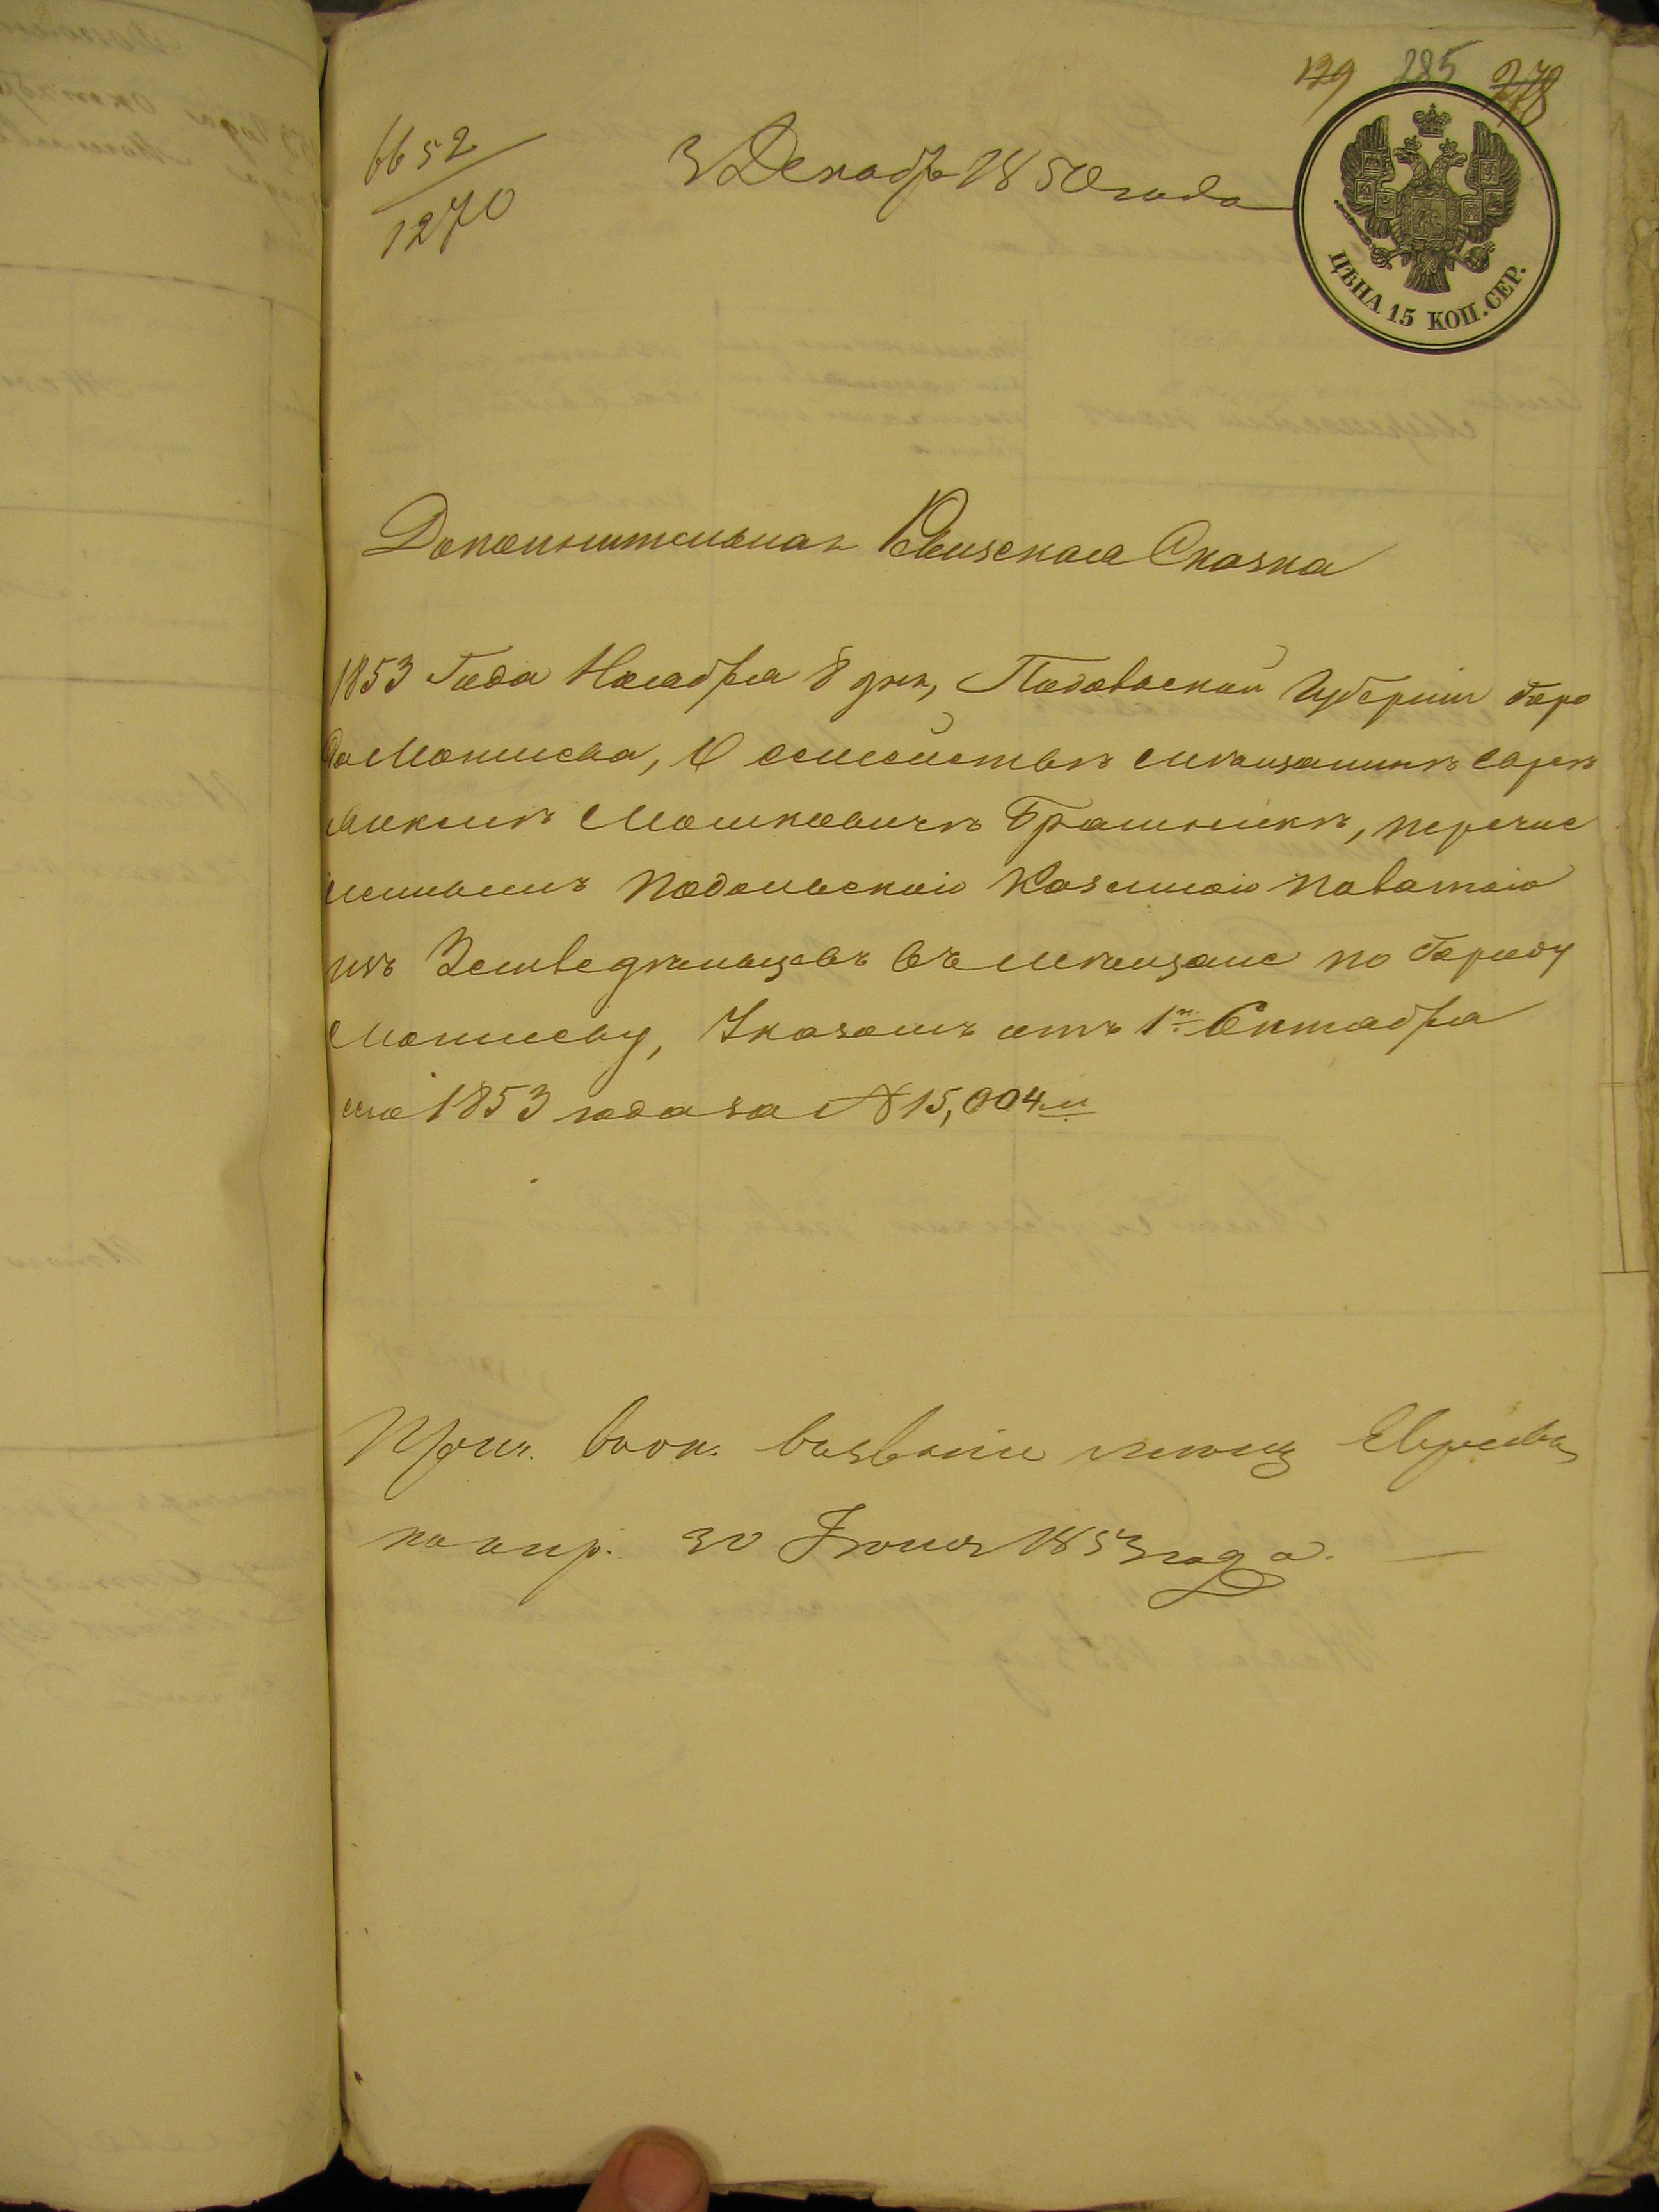 129 285 278
6652
1270
3 Декабр 1850 года
ЦѢНА 15 КОП. СЕР.
Дополнительная Ревизская Сказка
1853 Года Ноября 8 дня, Подольской Губерніи Горо
да Могилева, О семействѣ мѣщанинѣ евреѣ
Мошковичѣ Брашникѣ, перечис
леннымъ Подольскою Казенною Палатою
изъ Земледѣльцевъ въ мѣщане по Городу
Могилеву, Указомъ отъ 1го Октября
1853 года за № 15,004м
Евреевъ
30 Іюня 1853 года.